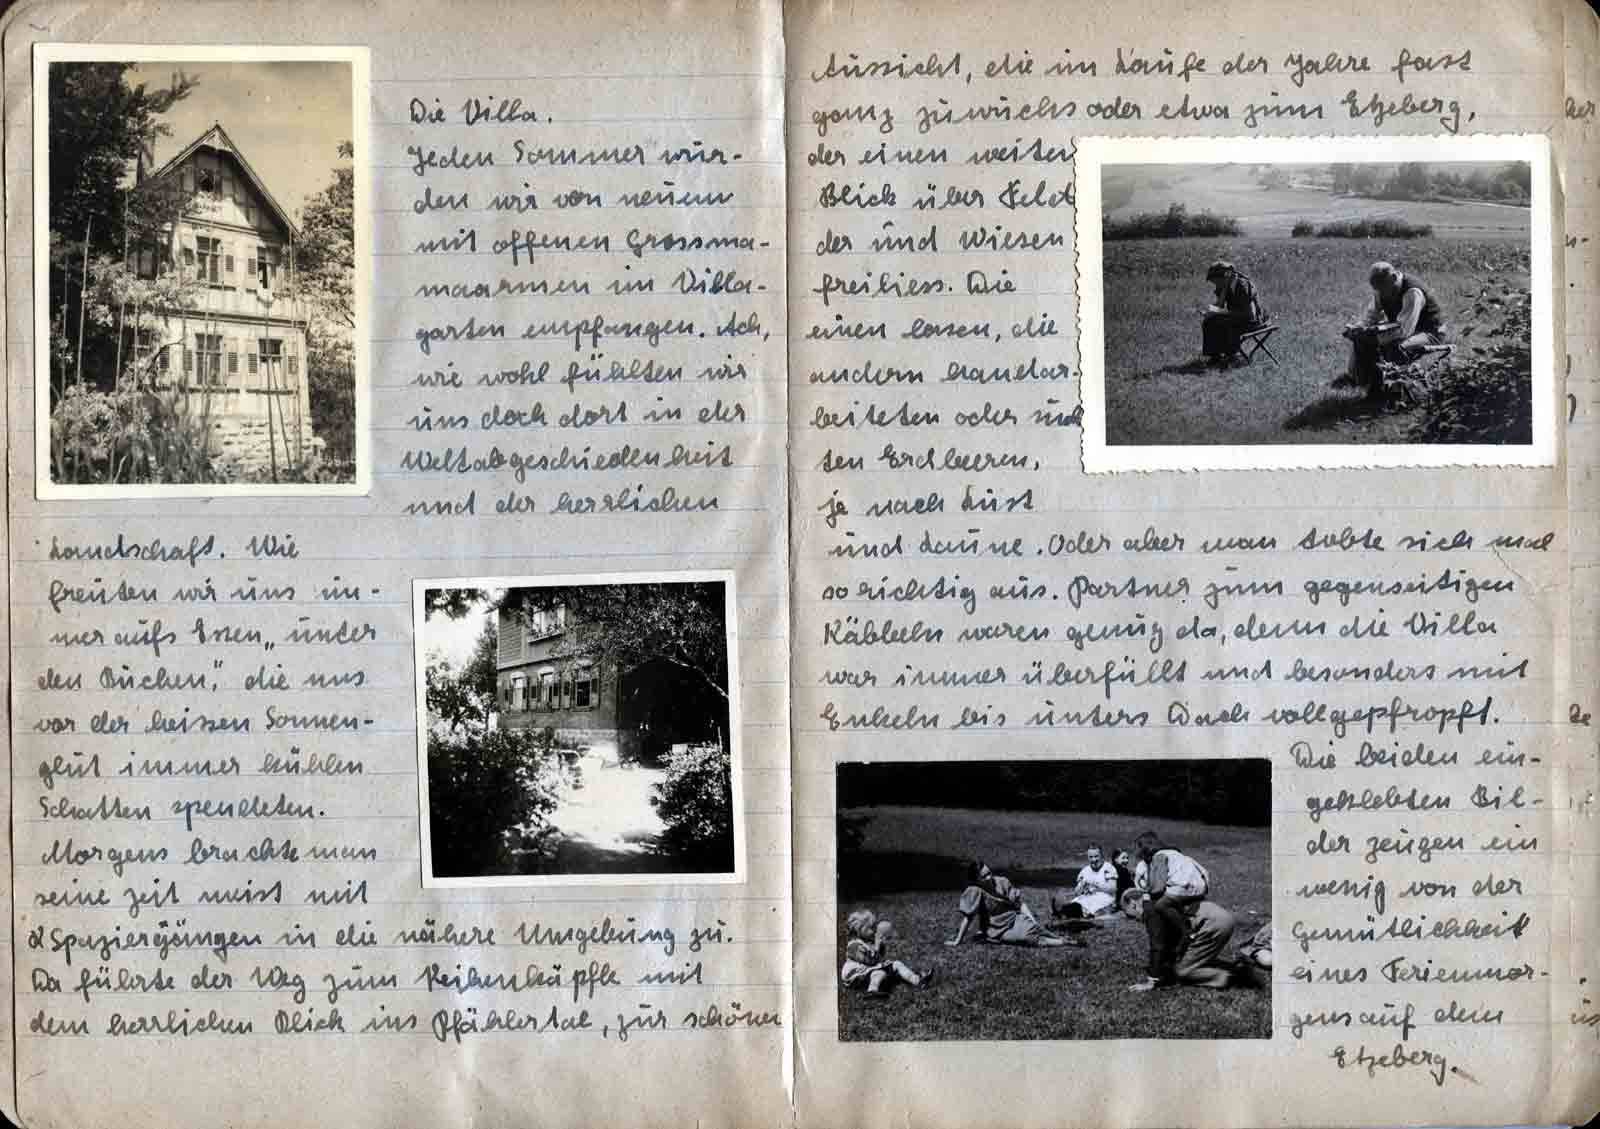 Die Villa.
Jeden Sommer wur-
den wir von neuem
mit offenen Grossma-
maarmen im Villa-
garten empfangen. Ach,
wie wohl fühlten wir
uns doch dort in der
Weltabgeschiedenheit
und der herrlichen
Landschaft. Wie
freuten wir uns im-
mer aufs Essen „unter
den Buchen", die uns
vor der heissen Sonnen-
glut immer kühlen
Schatten spendeten.
Morgens brachte man
seine Zeit meist mit
Spaziergängen in die nähere Umgebung zu.
Da führte der Weg zum
mit
dem herrlichen Blick ins
, zur schönen
Aussicht, die im Laufe der Jahre fast
ganz zuwuchs oder etwa zum Etzeberg,
der einen weiten
Blick über Fel
der und Wiesen
freiliess. Die
einen lasen, die
andern handar-
beiteten oder such
ten Erdbeeren,
je nach Lust
und Laune. Oder aber man tobte sich mal
so richtig aus. Partner zum gegenseitigen
Käbbeln waren genug da, denn die Villa
war immer überfüllt und besonders mit
Enkeln bis unters Dach vollgepfropft.
Die beiden ein-
geklebten Bil-
der zeugen ein
wenig von der
Gemütlichkeit
eines Ferienmor-
gens auf dem
Etzeberg.